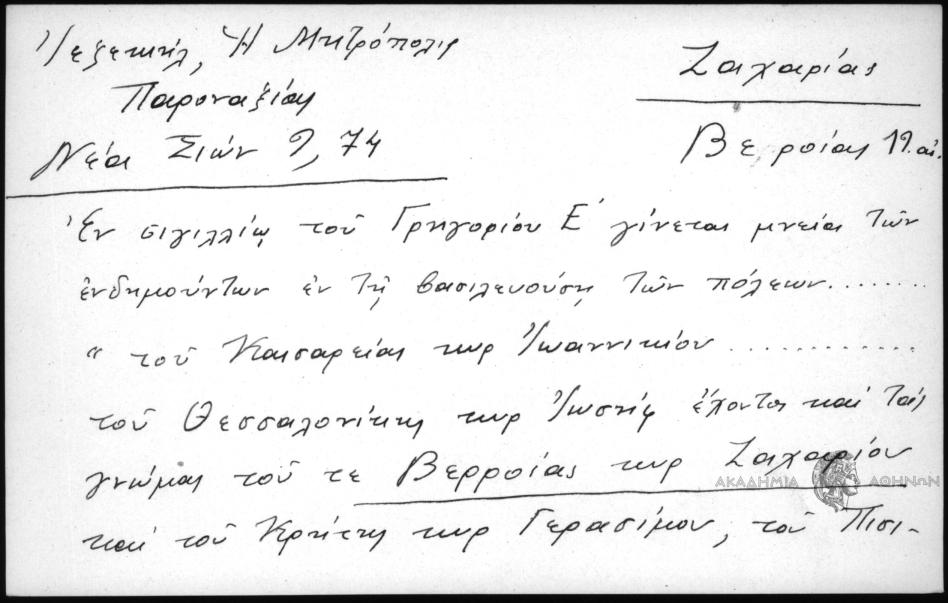 Ἰεζεκιήλ, Ἡ Μητρόπολις
Παροναξίας
Νέα Σιών 9, 74
Ζαχαρίας
Βεροίας 19 αἰ.
Ἐν σιγιλλίῳ τοῦ Γρηγορίου Ε΄ γίνεται μνεία τῶν
ἐνδημούντων ἐν τῇ βασιλευούσῃ τῶν πόλεων........
" τοῦ Καισαρείας κυρ Ἰωαννικίου ............
τοῦ Θεσσαλονίκης κυρ Ἰωσήφ ἔχοντος καί τάς
γνώμας τοῦ τε Βερροίας κυρ Ζαχαρίου
καί τοῦ Κρήτης κυρ Γερασίμου, τοῦ Πισι-
ΑΚΑΔΗΜΙΑ ΑΘΗΝΩΝ